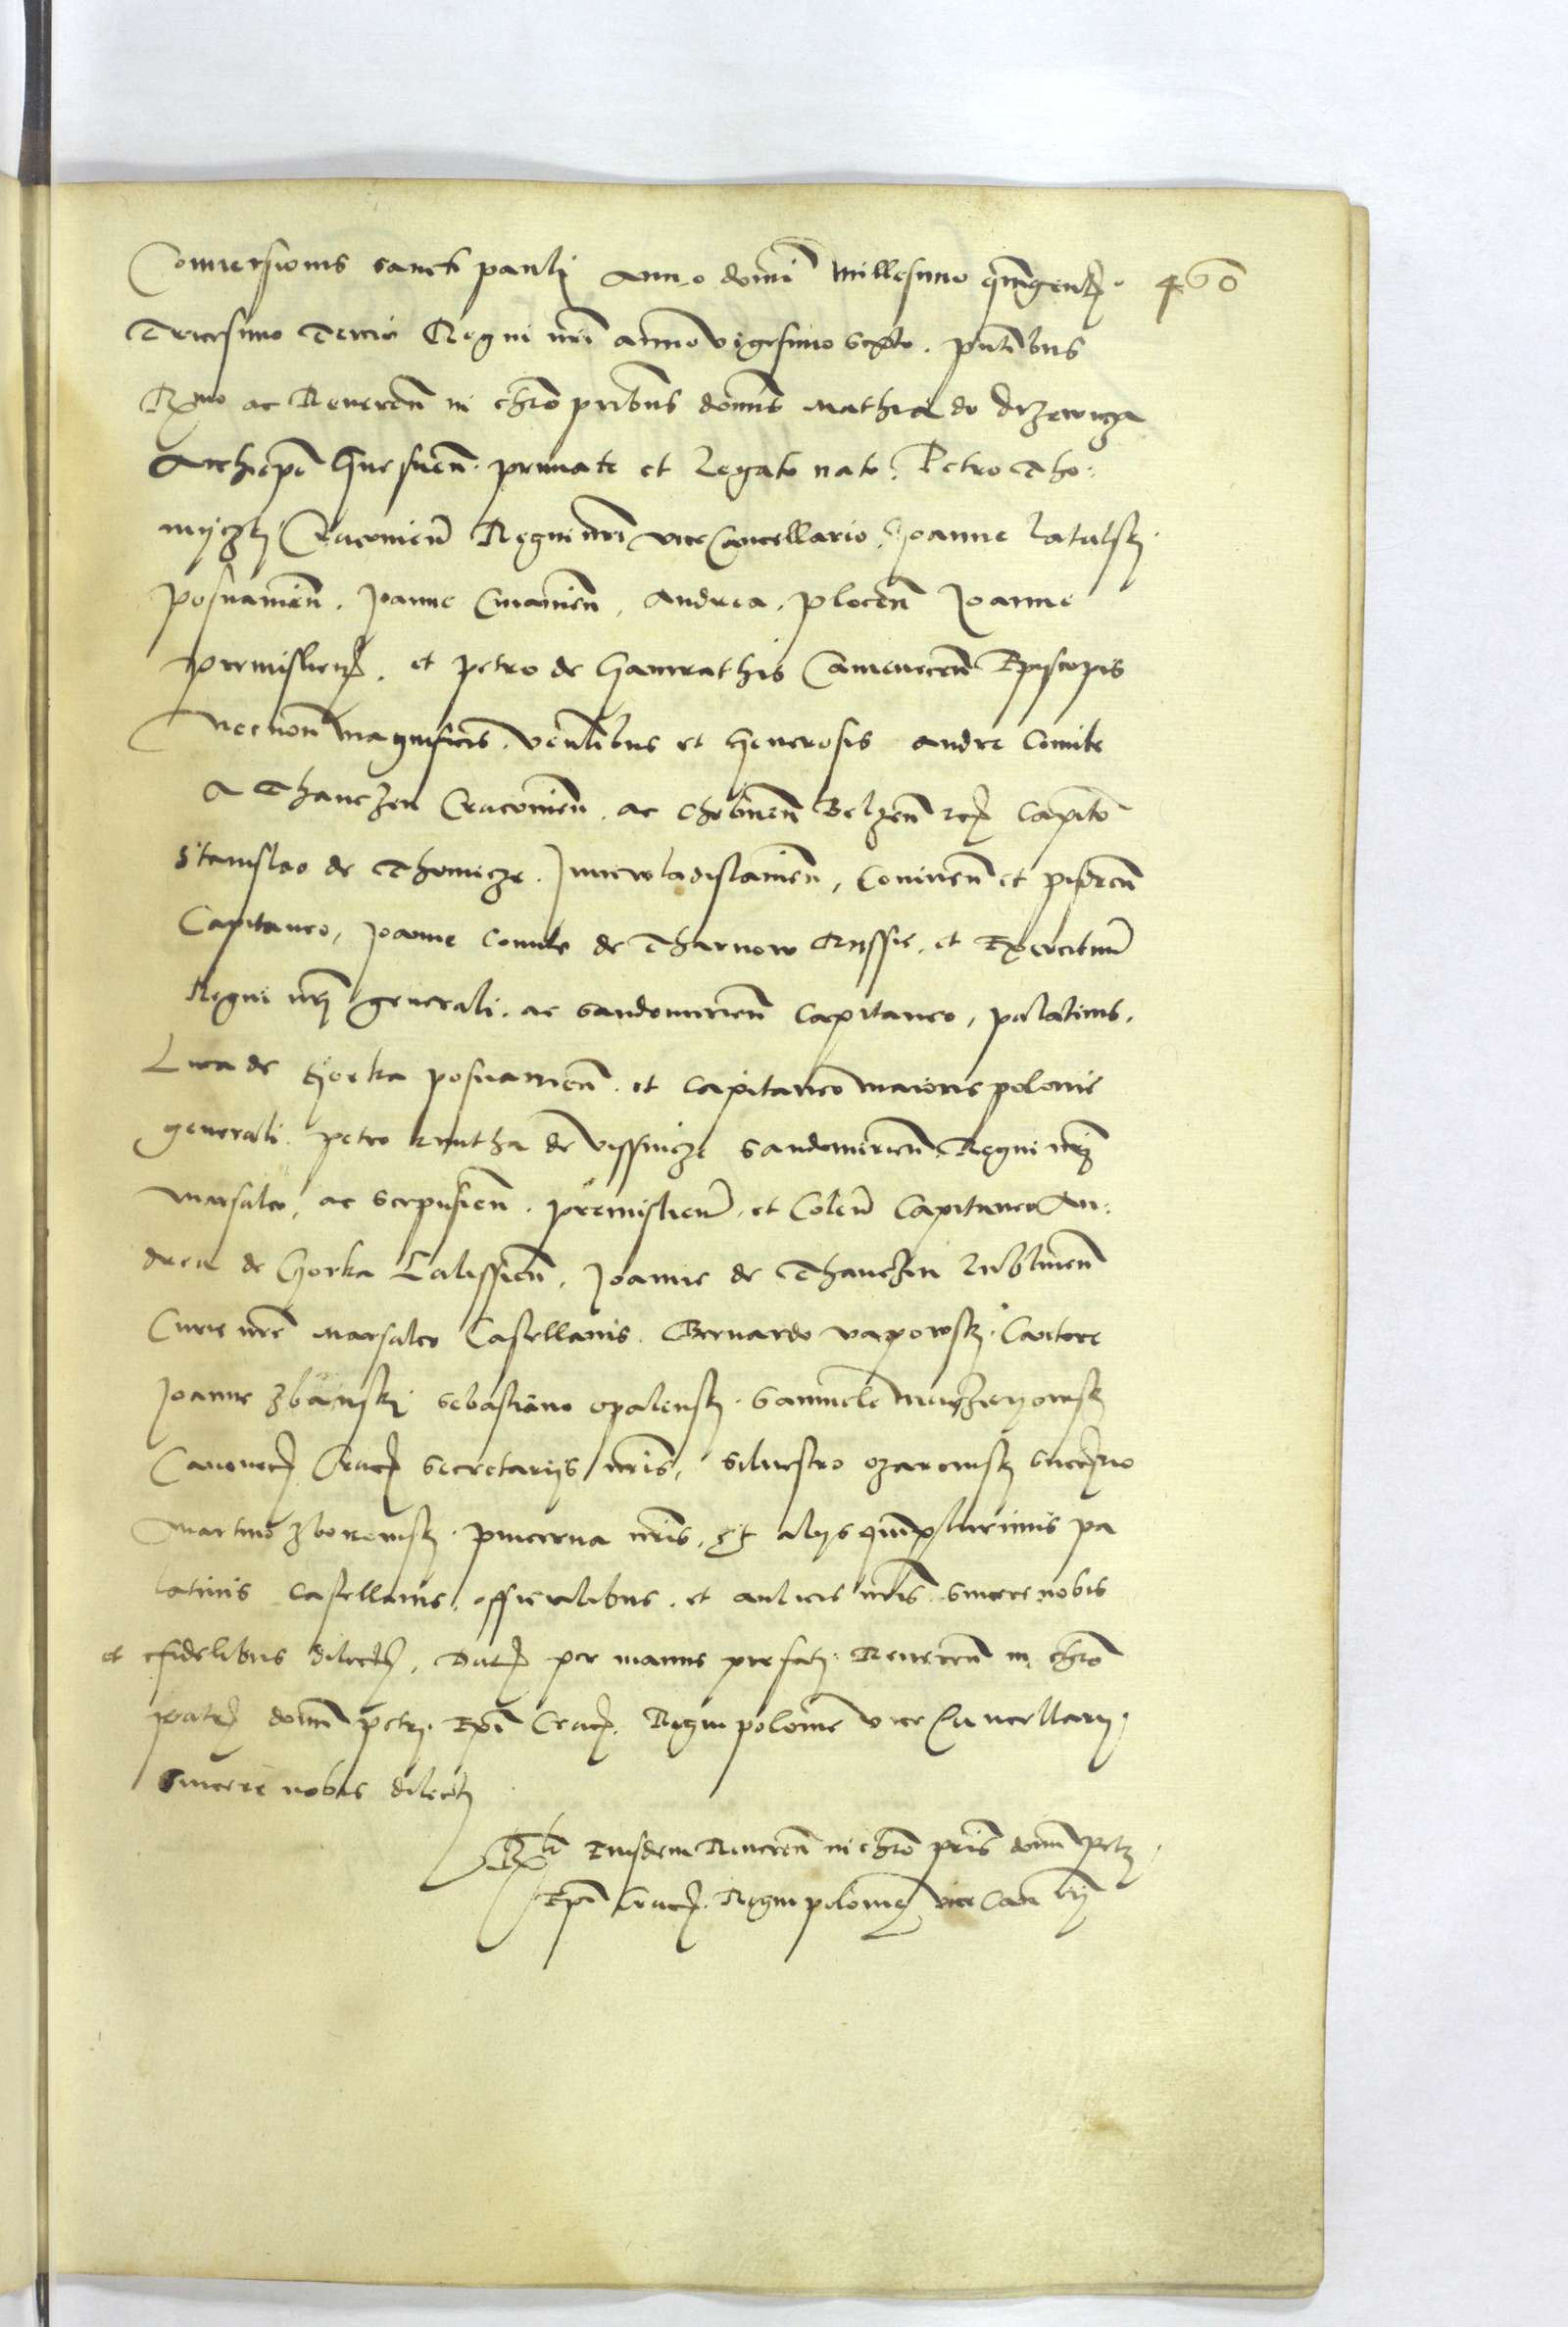 Conuersionis sancti pauli Anno domi Millesimo quingenꝭ. 460
Tricesimo Tercio Regni nri anno vigesimo sexto. pntibus
Rxmo ac Reueren in chro pribus domis Mathia de drzewicza
Archiepo Gnesnen. primate et legato nato. Petro Tho:
miczki Cracouien Regni nri vice Cancellario. Joanne latalsky
posnanien. Joanne Cuiauien, Andrea, plocen Joanne
premislienꝭ. et petro de Gamrathis Camenecen Episcopis
Necnon magnificis. venlibus et Generosis andre Comite
A Thanczen Cracouien. ac chelmen Belzen rcꝭ Capito
Stanislao de Thomicze. Juniewladislauien, Coninen et pisdren
Capitaneo, Joanne Comite de Tharnow Russie, et Exercituu
Regni nri generali. ac sandomirien Capitaneo, palatinis.
Luca de Gorka posnanien. et capitaneo maioris polonie
generali. petro kmitha de vissnicze sandomirien. Regni nri
Marsalco, ac scepusien. premislien. et Colen Capitaneo An:
drea de Gorka Calissien. Joanne de Thanczin lublinen
Curie nre Marsalco Castellanis. Bernardo vapowsky. Cantore
Joanne zbanski Sebastiano opalensky. Samuele Maczieyowsky
Canonicꝭ Cracꝭ Secretarijs nris, siluestro ozarowsky succꝭrio
Martino zborowsky. pincerna nris. Et alijs quamplurimis pa
latinis Castellanis. officialibus. et aulicis nris sincere nobis
et fidelibus dilectꝭ. Datꝭ per manus prefatj. Reueren in chro
patrꝭ domi petrj. Epi Cracꝭ. Regni polonie vice Cancellarij.
sincere nobis dilectj
Rxla Eiusdem Reueren in chro pris domi Petrj
Epi Cracꝭ. Regni polonie vice Can rij